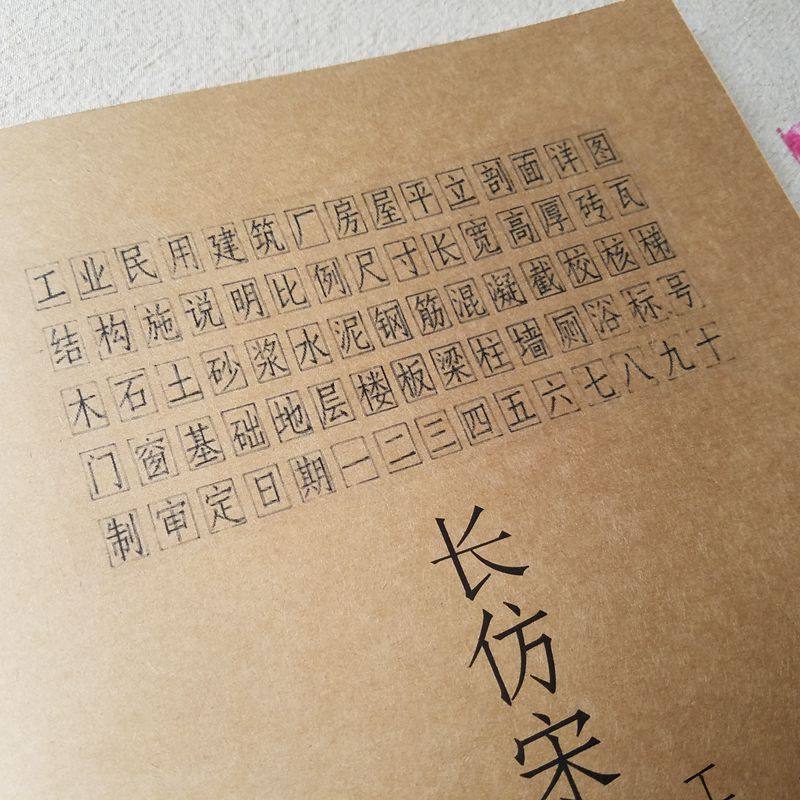 工业民用建筑厂房屋平立剖面详图
结构施说明比例尺寸长宽高厚砖瓦
木石土砂浆水泥钢筋混凝截校核梯
门窗基础地层楼板梁柱墙厕浴标号
制审定日期一二三四五六七八九十
长仿宋
工